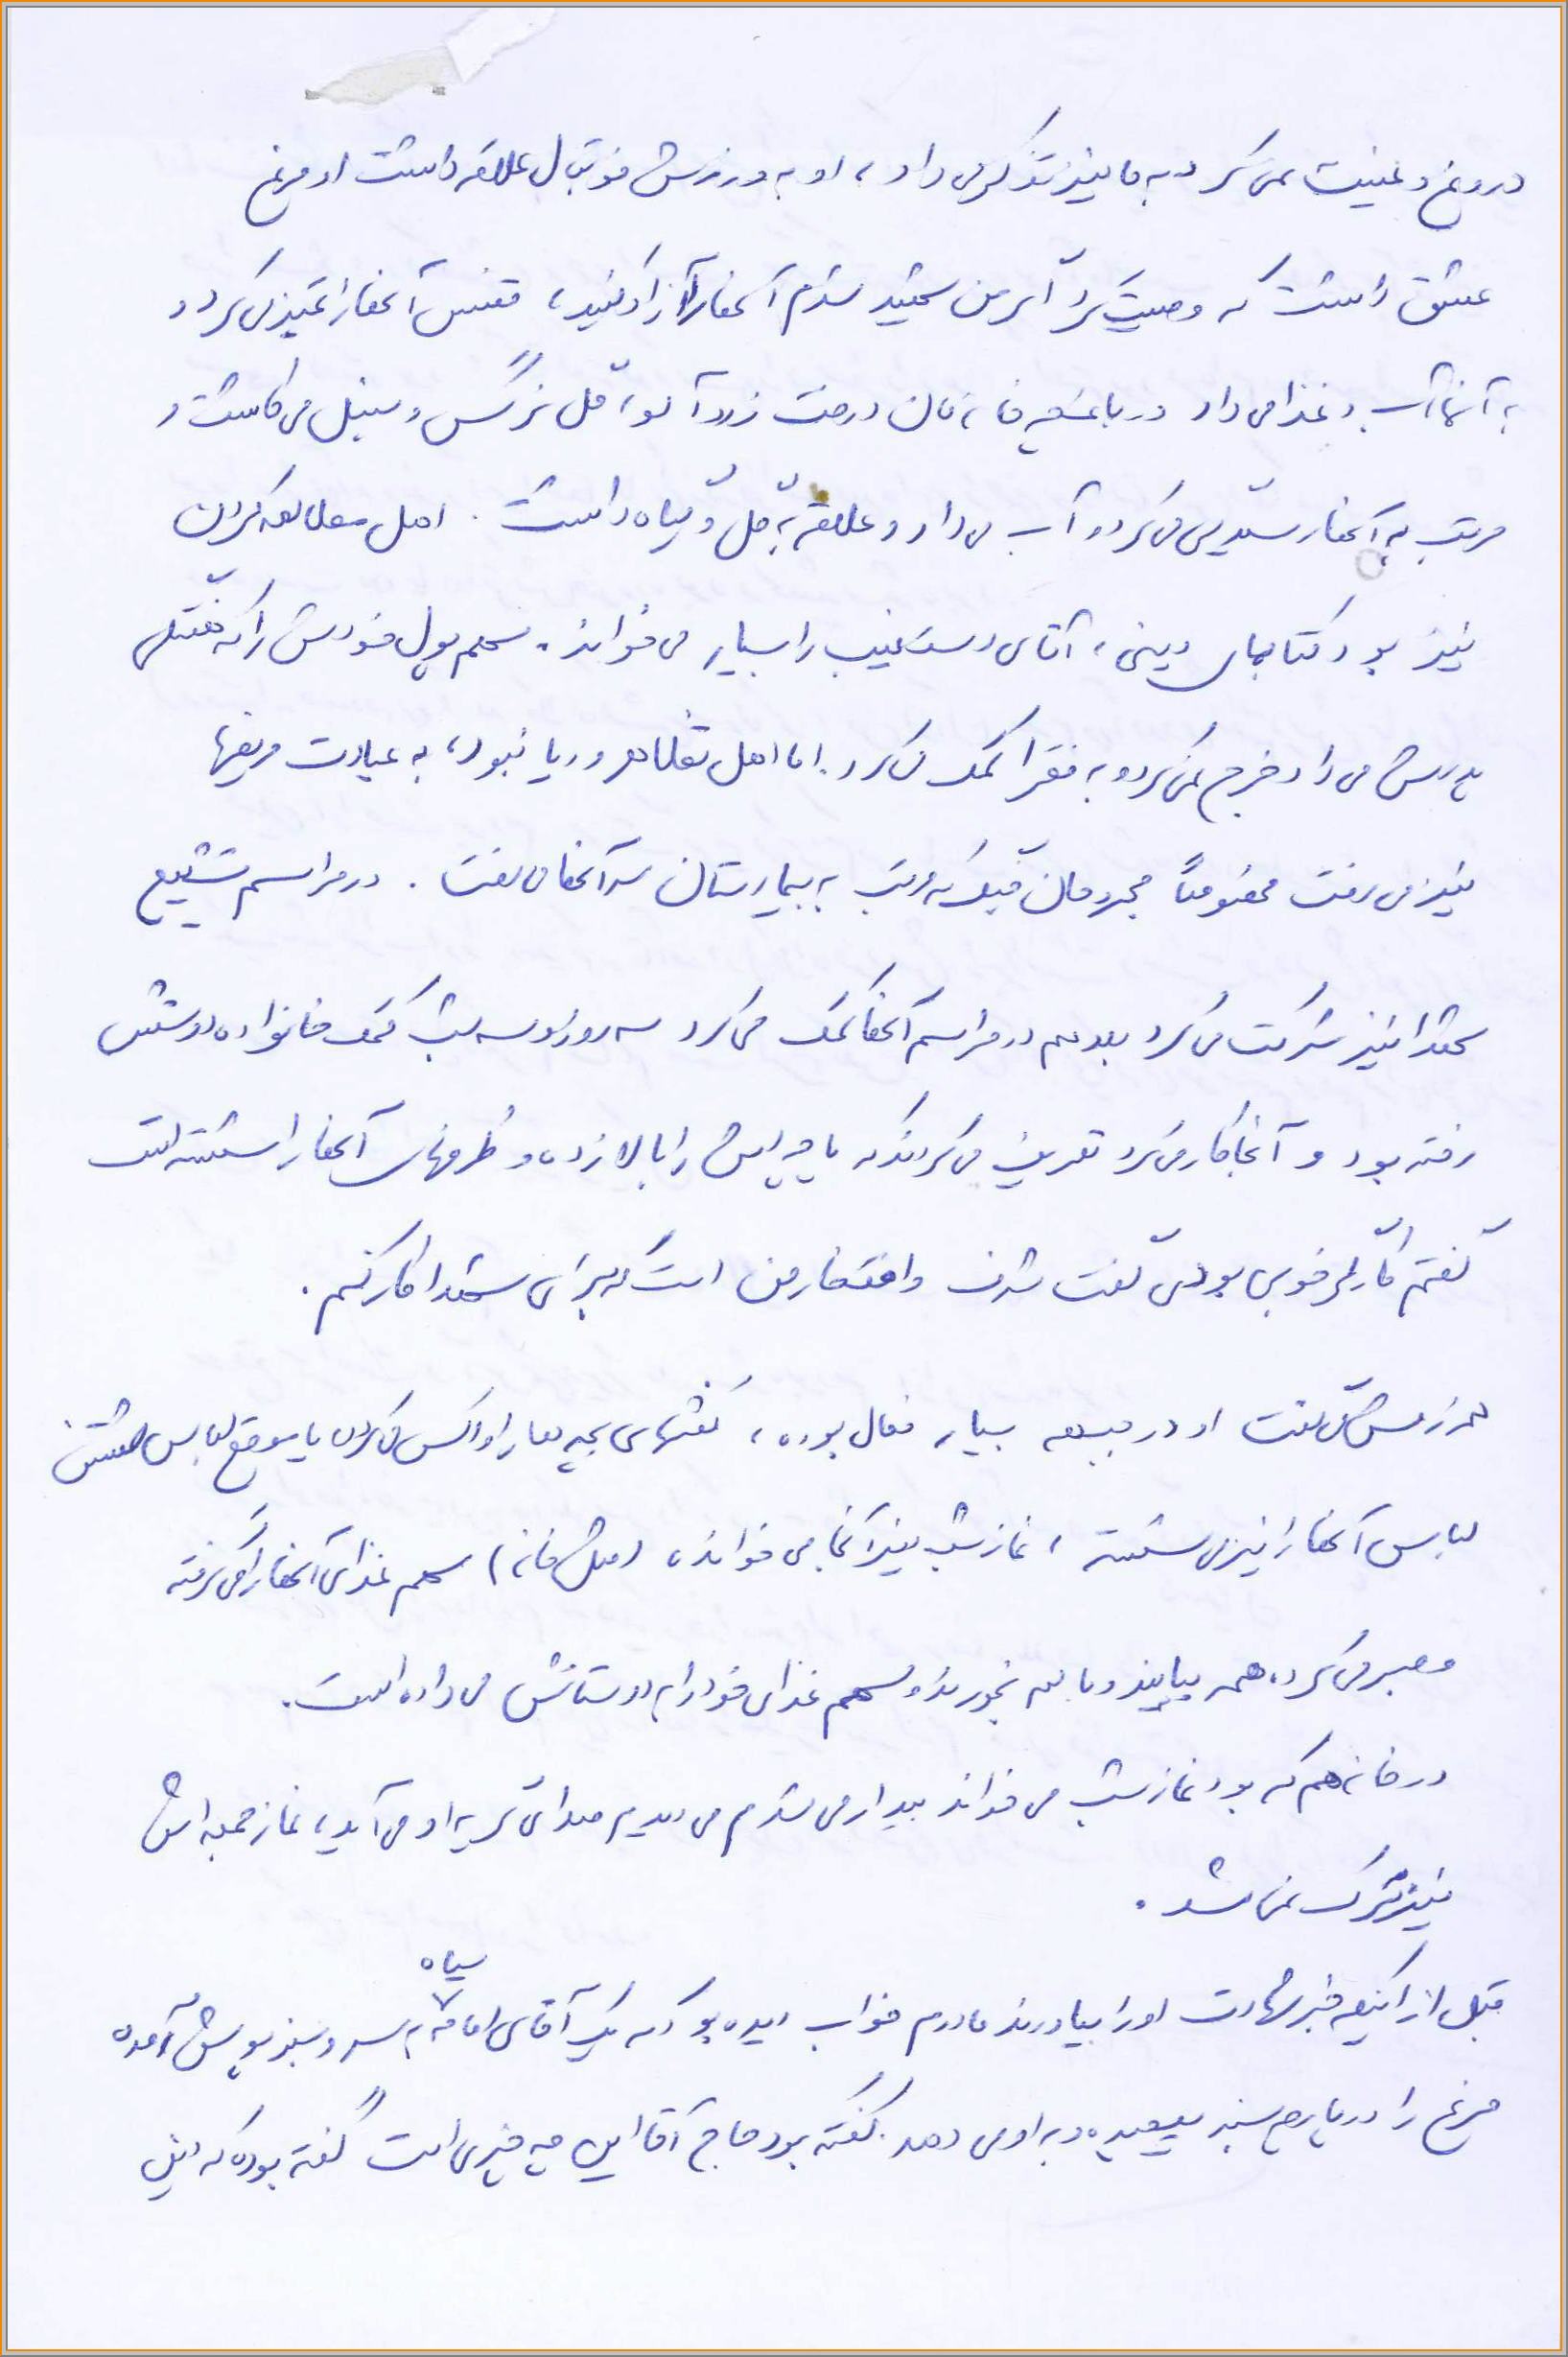 دروغ و غیبت نمی کرد به ما نیز تذکر می داد، او به ورزش فوتبال علاقه داشت او مرغ
عشق داشت که وصیت کرد اگر من شهید شدم آنها را آزاد کنید، قفس آنها را تمیز می کرد و
به آنها آب و غذا می داد در باغچه خانه مان درخت زردآلو، گل نرگس و سنبل می کاشت و
مرتب به آنها رسیدگی می کرد و آب می داد و علاقه به گل و گیاه داشت. اهل مطالعه کردن
نیز بود کتابهای دینی، آقای دستغیب را بسیار می خواند. سهم پول خودش را که هفتگی
پدرش می داد خرج نمی کرد و به فقرا کمک می کرد. اما اهل تظاهر و ریا نبود، به عیادت مریضها
نیز می رفت مخصوصاً مجروحان جنگ که مرتب به بیمارستان آنها می رفت. در مراسم تشییع
شهدا نیز شرکت می کرد بعد هم در مراسم آنها کمک می کرد سه روز و سه شب کمک خانواده دوستش
رفته بود و آنجا کار می کرد تعریف می کردند که پاچه اش را بالا زده و ظرفهای آنها را شسته است
گفتم کارگر خوبی بودی گفت شرف و افتخار من است که برای شهدا کار کنم.
همرزمش می گفت او در جبهه بسیار فعال بوده، کفشهای بچه ها را واکس می کرده یا موقع لباس شستن
لباس آنها را نیز می شسته، نماز شب نیز آنجا می خوانده (مثل خانه) سهم غذای آنها را می گرفته
و صبر می کرده همه بیایند و با هم بخورند و سهم غذای خود را به دوستانش می داده است.
در خانه هم که بود نماز شب می خواند بیدار می شدم می دیدم صدای گریه او می آید، نماز جمعه اش
نیز ترک نمی شد.
قبل از اینکه خبر شهادت او را بیاورند مادرم خواب دیده بود که یک آقای عمامه سیاه به سر و سبز پوش آمده
مرغ را در پارچه سبز پیچیده و به او می دهد. گفته بود حاج آقا این چه چیزی است گفته بود که این